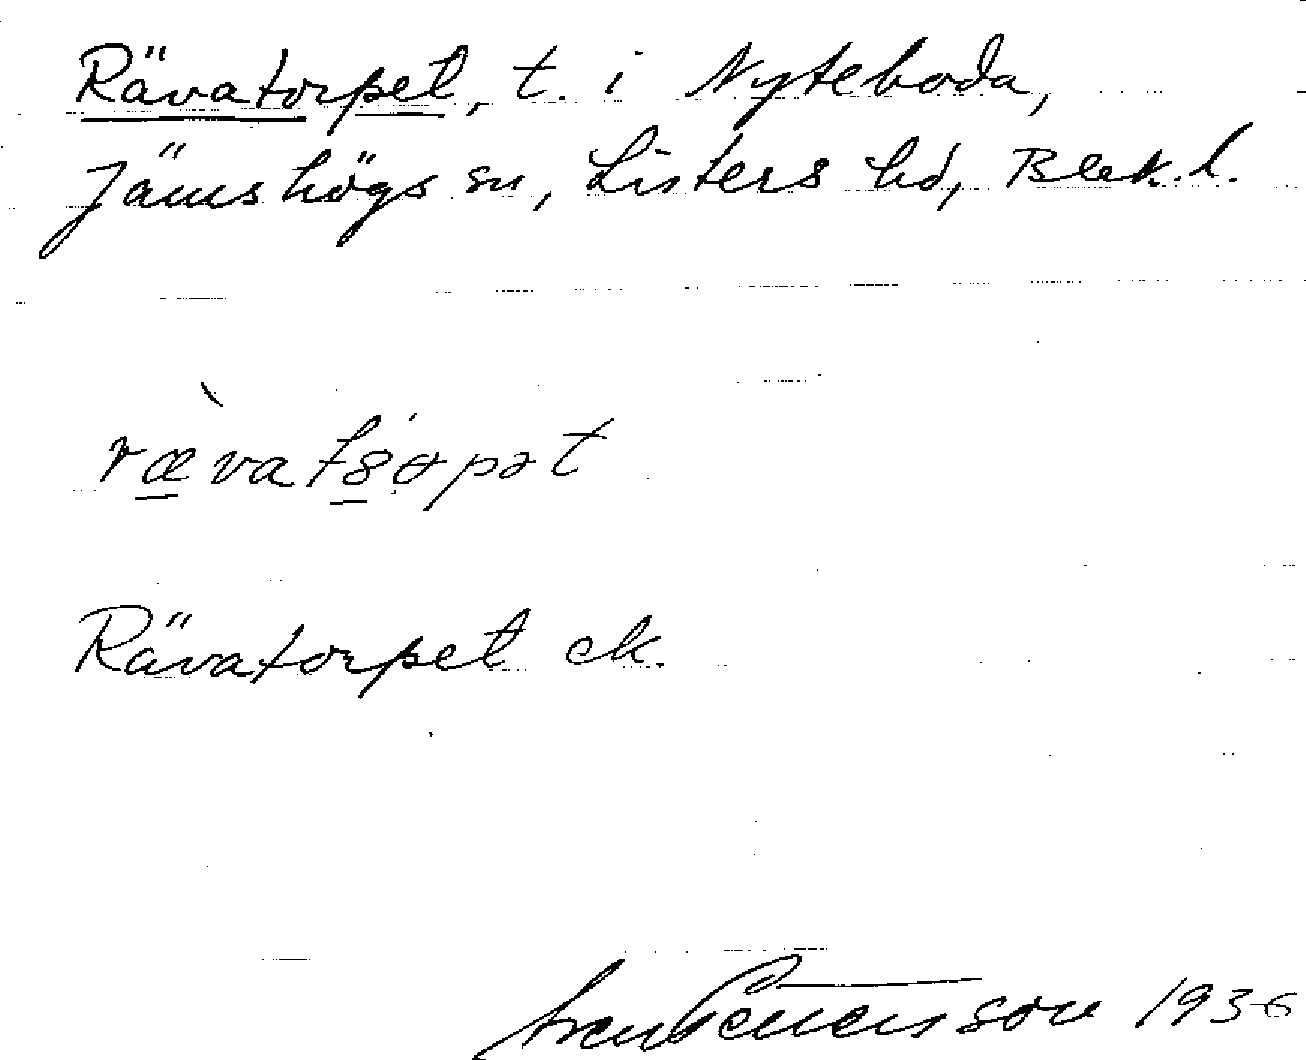 Rävatorpet, t. i Nyteboda,
Jämshögs sn, Listers hd, Blek. l.
Rävatorpet ek.
1936